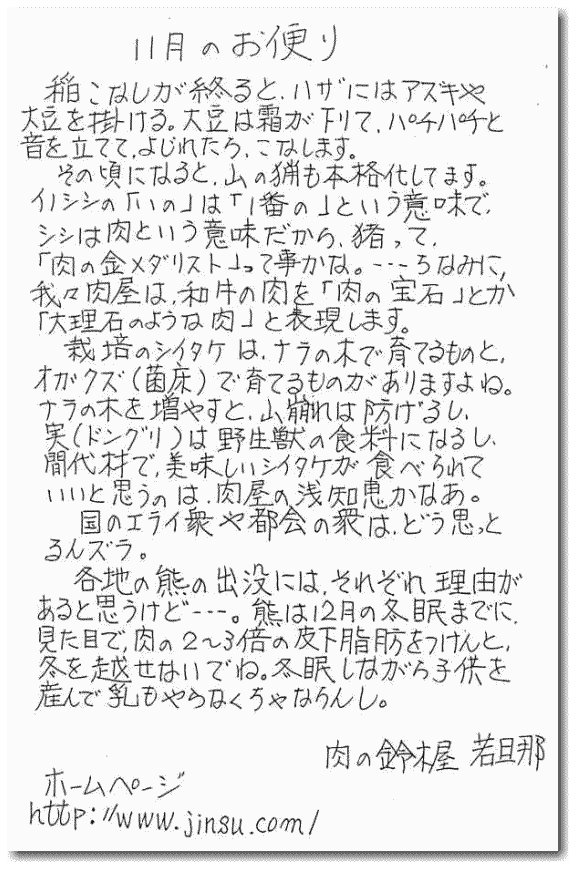 11月のお便り
稲こなしが終ると、ハザにはアズキや
大豆を掛ける。大豆は霜が下りて、パチパチと
音を立てて、よじれたら、こなします。
その頃になると、山の猟も本格化してます。
イノシシの「いの」は「1番の」という意味で、
シシは肉という意味だから、猪って、
「肉の金メダリスト」って事かな。---ちなみに、
我々肉屋は、和牛の肉を「肉の宝石」とか
「大理石のような肉」と表現します。
栽培のシイタケは、ナラの木で育てるものと、
オガクズ(菌床)で育てるものがありますよね。
ナラの木を増やすと、山崩れは防げるし、
実(ドングリ)は野生獣の食料になるし、
間代材で、美味しいシイタケが食べられて
いいと思うのは、肉屋の浅知恵かなあ。
国のエライ衆や都会の衆は、どう思っと
るんズラ。
各地の熊の出没には、それぞれ理由が
あると思うけど---。熊は12月の冬眠までに、
見た目で、肉の2〜3倍の皮下脂肪をつけんと、
冬を越せないでね。冬眠しながら子供を
産んで乳もやらなくちゃならんし。
肉の鈴木屋 若旦那
ホームページ
http://www.jinsu.com/